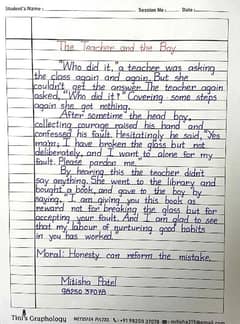 Student's Name :
Session No :
Date :
The Teacher and the Boy
"Who did it," a teacher was asking
the class again and again. But she
couldn't get the answer. The teacher again
asked, "Who did it?" Covering some steps
again she got nothing.
After sometime the head boy,
collecting courage raised his hand and
confessed his fault. Hesitatingly he said, "Yes
mam, I have broken the glass but not
deliberately, and I want to alone for my
fault. Please pardon me."
By hearing this the teacher didn't
say anything. She went to the library and
bought a book, and gave to the boy by
saying, "I am giving you this book as
reward not for breaking the glass but for
accepting your fault. And I am glad to see
that my labour of nurturing good habits
in you has worked."
Moral: Honesty can reform the mistake.
Mitisha Patel
98250 37078
Tini's Graphology
MITISHA PATEL
+91 98250 37078